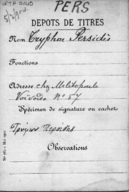 PERS
DEPOTS DE TITRES
Nom Tryphon Persidis
Fonctions
Adresse chez Molitopoulo
Voïvoda No 57
Spécimen de signature ou cachet
Observations